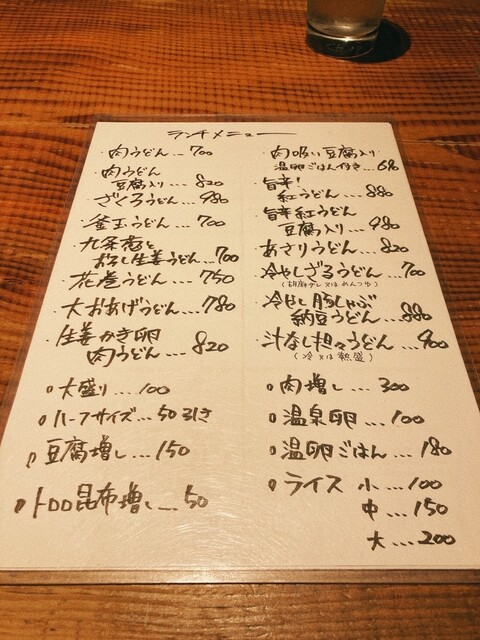 ランチメニュー
・肉うどん…700
・肉うどん
豆腐入り…820
ざくろうどん…980
・釜玉うどん…700
九条葱と
おろし生姜うどん…700
・花巻うどん…750
・大おあげうどん…780
・生姜かき卵
肉うどん…820
○大盛り…100
○ハーフサイズ…50引き
○豆腐増し…150
○トロロ昆布増し…50
・肉吸い豆腐入り
温卵ごはん付き…680
・旨辛!
紅うどん…880
旨辛紅うどん
豆腐入り…980
あさりうどん…820
冷やしざるうどん…700
(胡麻ダレ又はめんつゆ)
冷やし豚しゃぶ
納豆うどん…880
・汁なし担々うどん…900
(冷又は熱盛)
○肉増し…300
○温泉卵…100
○温卵ごはん…180
○ライス 小…100
中…150
大…200